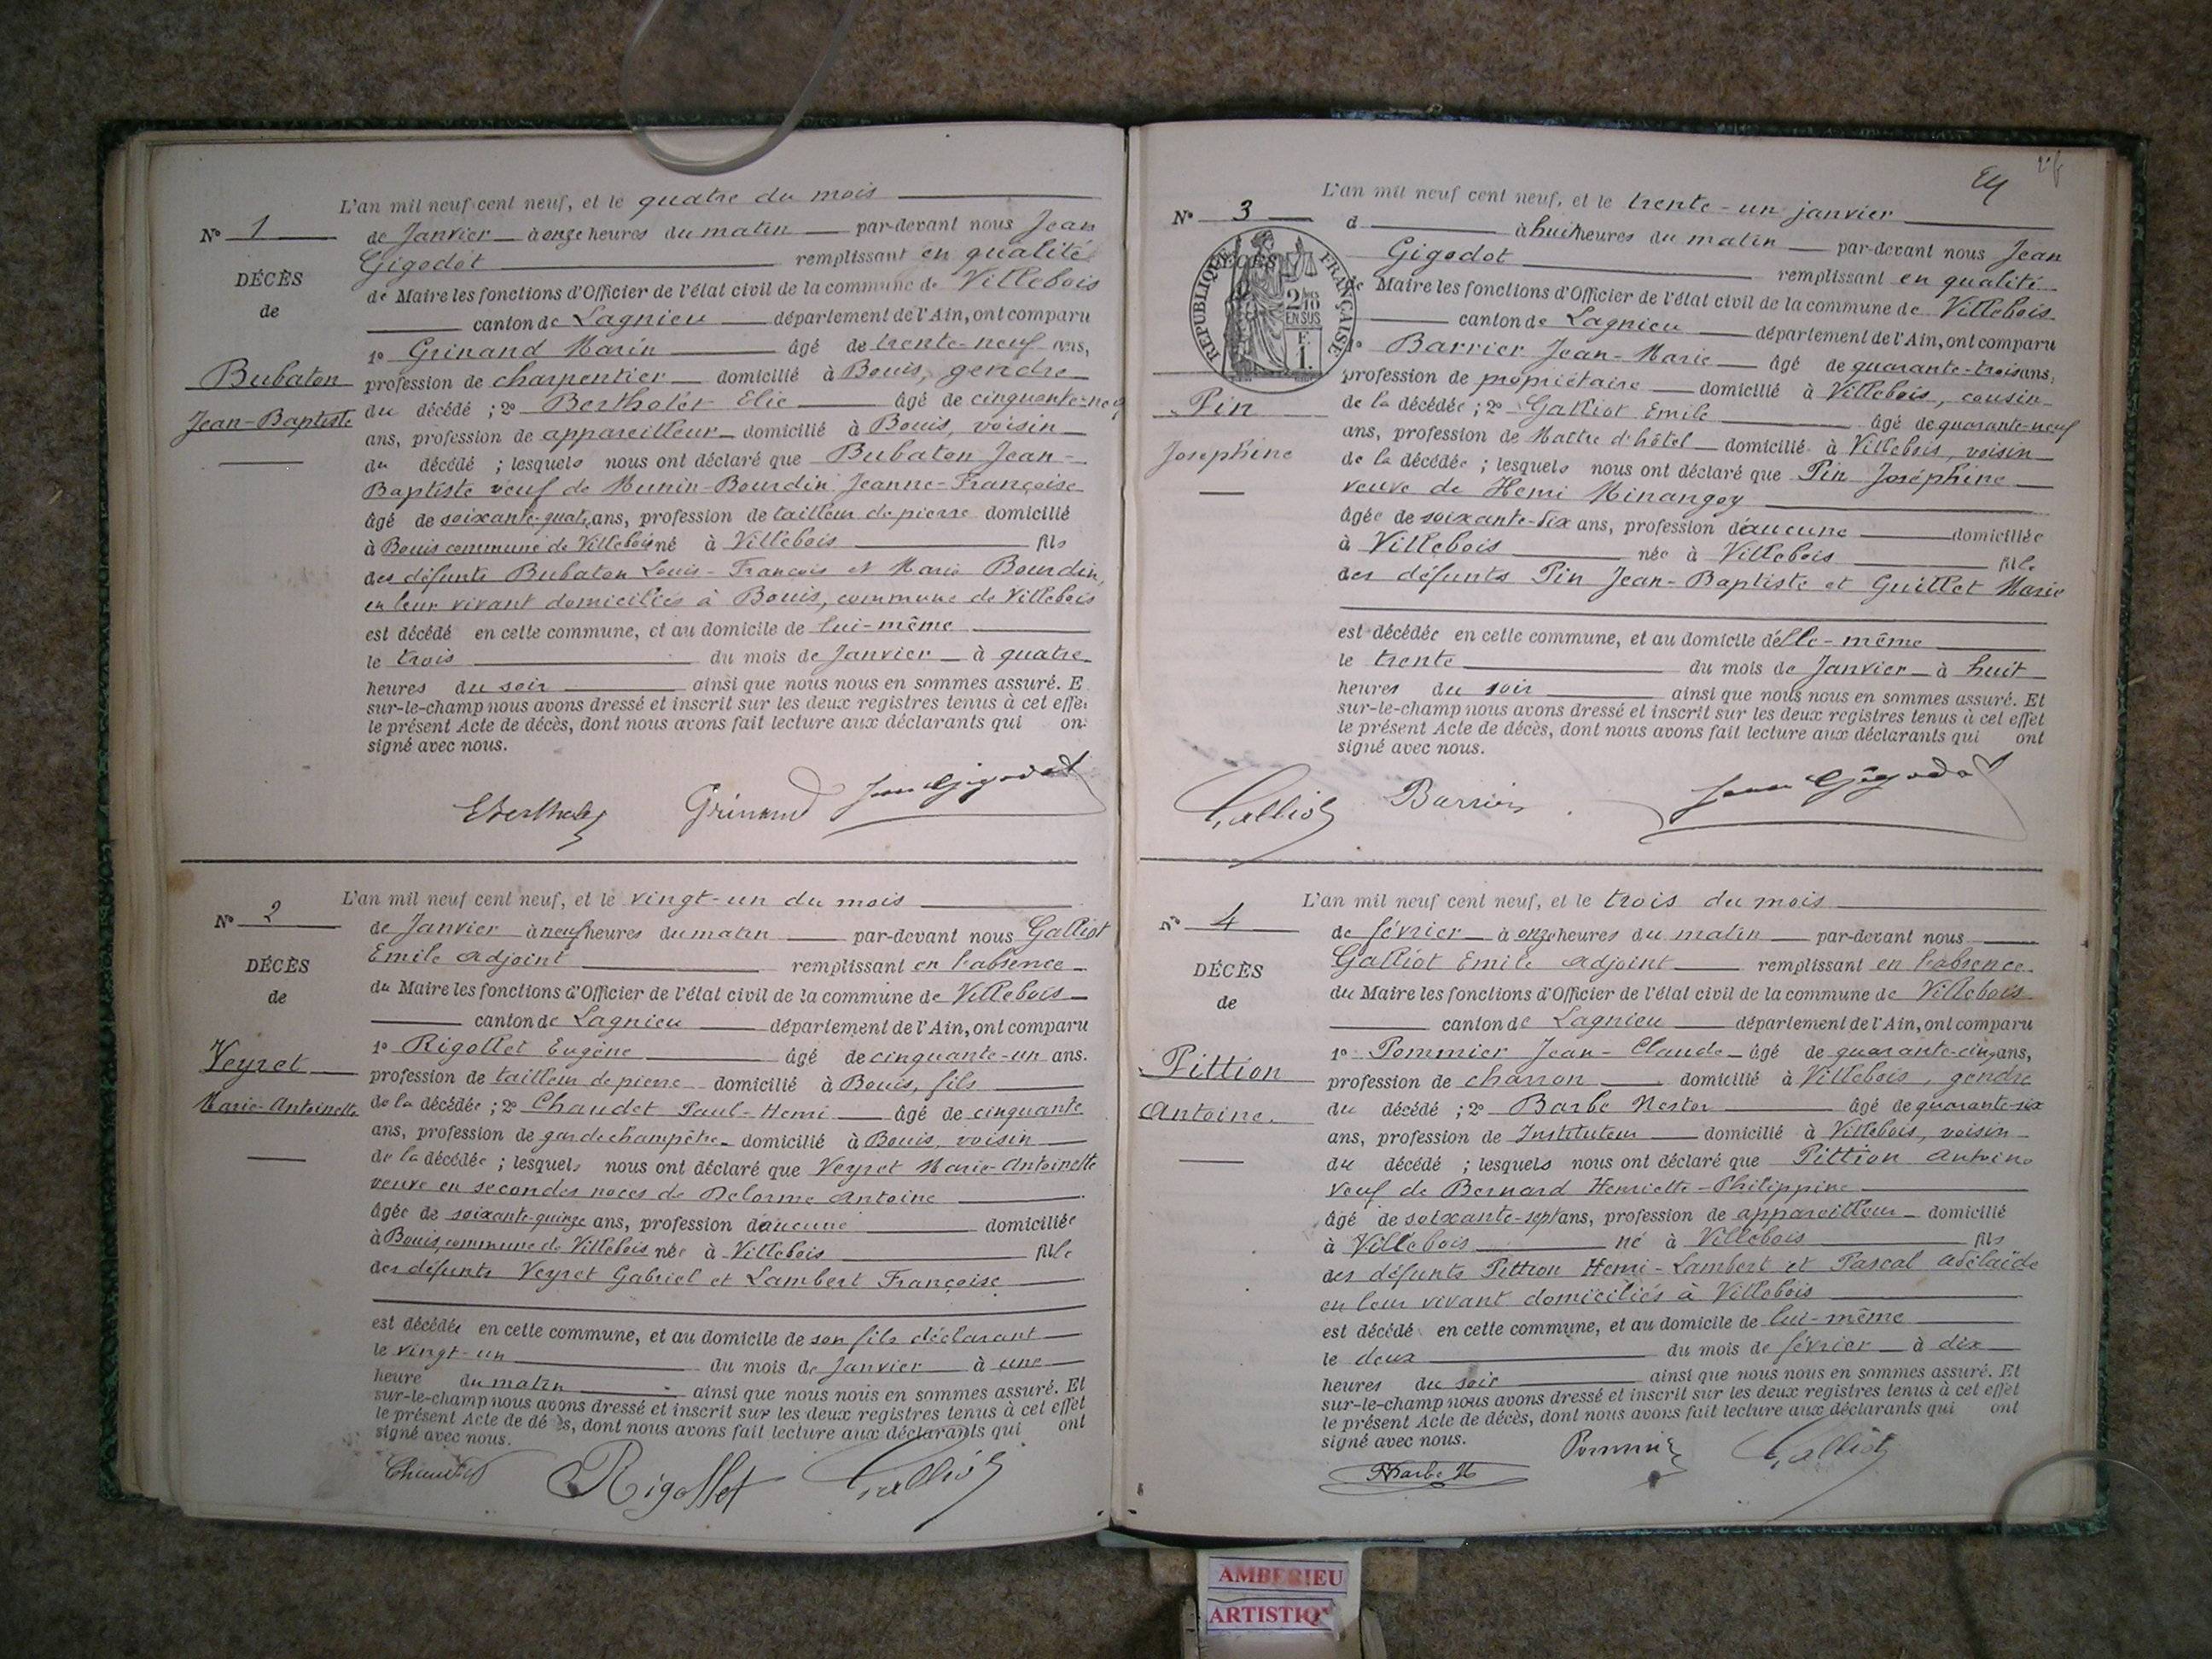 L'an mil neuf cent neuf, et le quatre du mois
N° 1
de Janvier à onze heures du matin par-devant nous Jean
Gigodot remplissant en qualité
DÉCÈS
de Maire les fonctions d'Officier de l'état civil de la commune de Villebois
de
canton de Lagnieu département de l'Ain, ont comparu
1° Grinand Marin âgé de trente-neuf ans,
Bubaton
profession de charpentier domicilié à Bouis, gendre
Jean-Baptiste
du décédé ; 2° Bertholet Elie âgé de cinquante-neuf
ans, profession de appareilleur domicilié à Bouis, voisin
du décédé ; lesquels nous ont déclaré que Bubaton Jean-
Baptiste veuf de Munin-Bourdin Jeanne-Françoise
âgé de soixante-quatre ans, profession de tailleur de pierre domicilié
à Bouis commune de Villebois né à Villebois fils
des défunts Bubaton Louis-François et Marie Bourdin,
en leur vivant domiciliés à Bouis, commune de Villebois
est décédé en cette commune, et au domicile de lui-même
le trois du mois de Janvier à quatre
heures du soir ainsi que nous nous en sommes assuré. E
sur-le-champ nous avons dressé et inscrit sur les deux registres tenus à cet effe
le présent Acte de décès, dont nous avons fait lecture aux déclarants qui on
signé avec nous.
EBertholet Grinand Jean Gigodot
L'an mil neuf cent neuf, et le vingt-un du mois
N° 2
de Janvier à neuf heures du matin par-devant nous Galliot
Emile adjoint remplissant en l'absence
DÉCÈS
du Maire les fonctions d'Officier de l'état civil de la commune de Villebois
de
canton de Lagnieu département de l'Ain, ont comparu
1° Rigollet Eugène âgé de cinquante-un ans.
Veyret
profession de tailleur de pierre domicilié à Bouis, fils
Marie-Antoinette
de la décédée ; 2° Chaudet Paul-Henri âgé de cinquante
ans, profession de garde champêtre domicilié à Bouis, voisin
de la décédée ; lesquels nous ont déclaré que Veyret Marie-Antoinette
veuve en secondes noces de Delorme Antoine
âgée de soixante-quinze ans, profession d'aucune domiciliée
à Bouis, commune de Villebois née à Villebois fille
des défunts Veyret Gabriel et Lambert Françoise
est décédée en cette commune, et au domicile de son fils déclarant
le vingt-un du mois de Janvier à une
heure du matin ainsi que nous nous en sommes assuré. Et
sur-le-champ nous avons dressé et inscrit sur les deux registres tenus à cet effet
le présent Acte de décès, dont nous avons fait lecture aux déclarants qui ont
signé avec nous.
Chaudet Rigollet Galliot
24
L'an mil neuf cent neuf, et le trente-un janvier
N° 3
d à huit heures du matin par-devant nous Jean
Gigodot remplissant en qualité
DÉCÈS
RÉPUBLIQUE FRANÇAISE
2/10 EN SUS
F. 1.
de Maire les fonctions d'Officier de l'état civil de la commune de Villebois
canton de Lagnieu département de l'Ain, ont comparu
1° Barrier Jean-Marie âgé de quarante-trois ans,
profession de propriétaire domicilié à Villebois, cousin
Pin
de la décédée ; 2° Galliot Emile âgé de quarante-neuf
ans, profession de Maître d'hôtel domicilié à Villebois, voisin
Joséphine
de la décédée ; lesquels nous ont déclaré que Pin Joséphine
veuve de Henri Minangoy
âgée de soixante-dix ans, profession d'aucune domiciliée
à Villebois née à Villebois fille
des défunts Pin Jean-Baptiste et Guillet Marie
est décédée en cette commune, et au domicile d'elle-même
le trente du mois de Janvier à huit
heures du soir ainsi que nous nous en sommes assuré. Et
sur-le-champ nous avons dressé et inscrit sur les deux registres tenus à cet effet
le présent Acte de décès, dont nous avons fait lecture aux déclarants qui ont
signé avec nous.
Galliot Barrier Jean Gigodot
L'an mil neuf cent neuf, et le trois du mois
N° 4
de février à onze heures du matin par-devant nous
Galliot Emile adjoint remplissant en l'absence
DÉCÈS
du Maire les fonctions d'Officier de l'état civil de la commune de Villebois
de
canton de Lagnieu département de l'Ain, ont comparu
1° Pommier Jean-Claude âgé de quarante-cinq ans,
Pittion
profession de charron domicilié à Villebois, gendre
Antoine.
du décédé ; 2° Barbe Nestor âgé de quarante-six
ans, profession de Instituteur domicilié à Villebois, voisin
du décédé ; lesquels nous ont déclaré que Pittion Antoine
veuf de Bernard Henriette-Philippine
âgé de soixante-sept ans, profession de appareilleur domicilié
à Villebois né à Villebois fils
des défunts Pittion Henri-Lambert et Pascal Adélaïde
en leur vivant domiciliés à Villebois
est décédé en cette commune, et au domicile de lui-même
le deux du mois de février à dix
heures du soir ainsi que nous nous en sommes assuré. Et
sur-le-champ nous avons dressé et inscrit sur les deux registres tenus à cet effet
le présent Acte de décès, dont nous avons fait lecture aux déclarants qui ont
signé avec nous.
Barbe N Pommier Galliot
AMBERIEU
ARTISTIQ